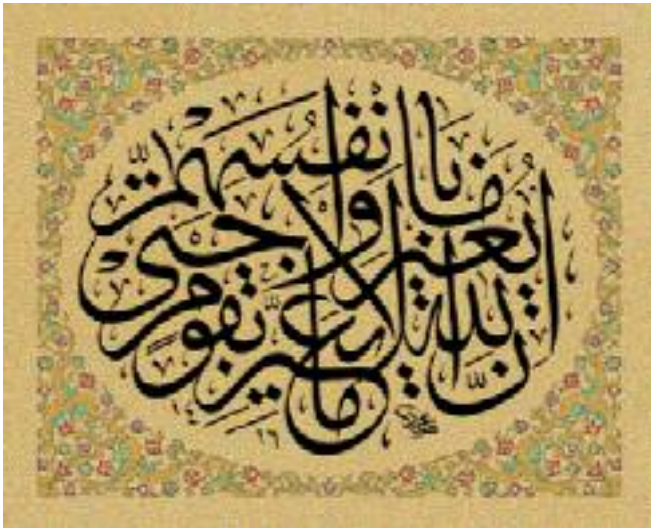 ان الله لا يغير ما بقوم حتى يغيروا ما بانفسهم
١٤١٦